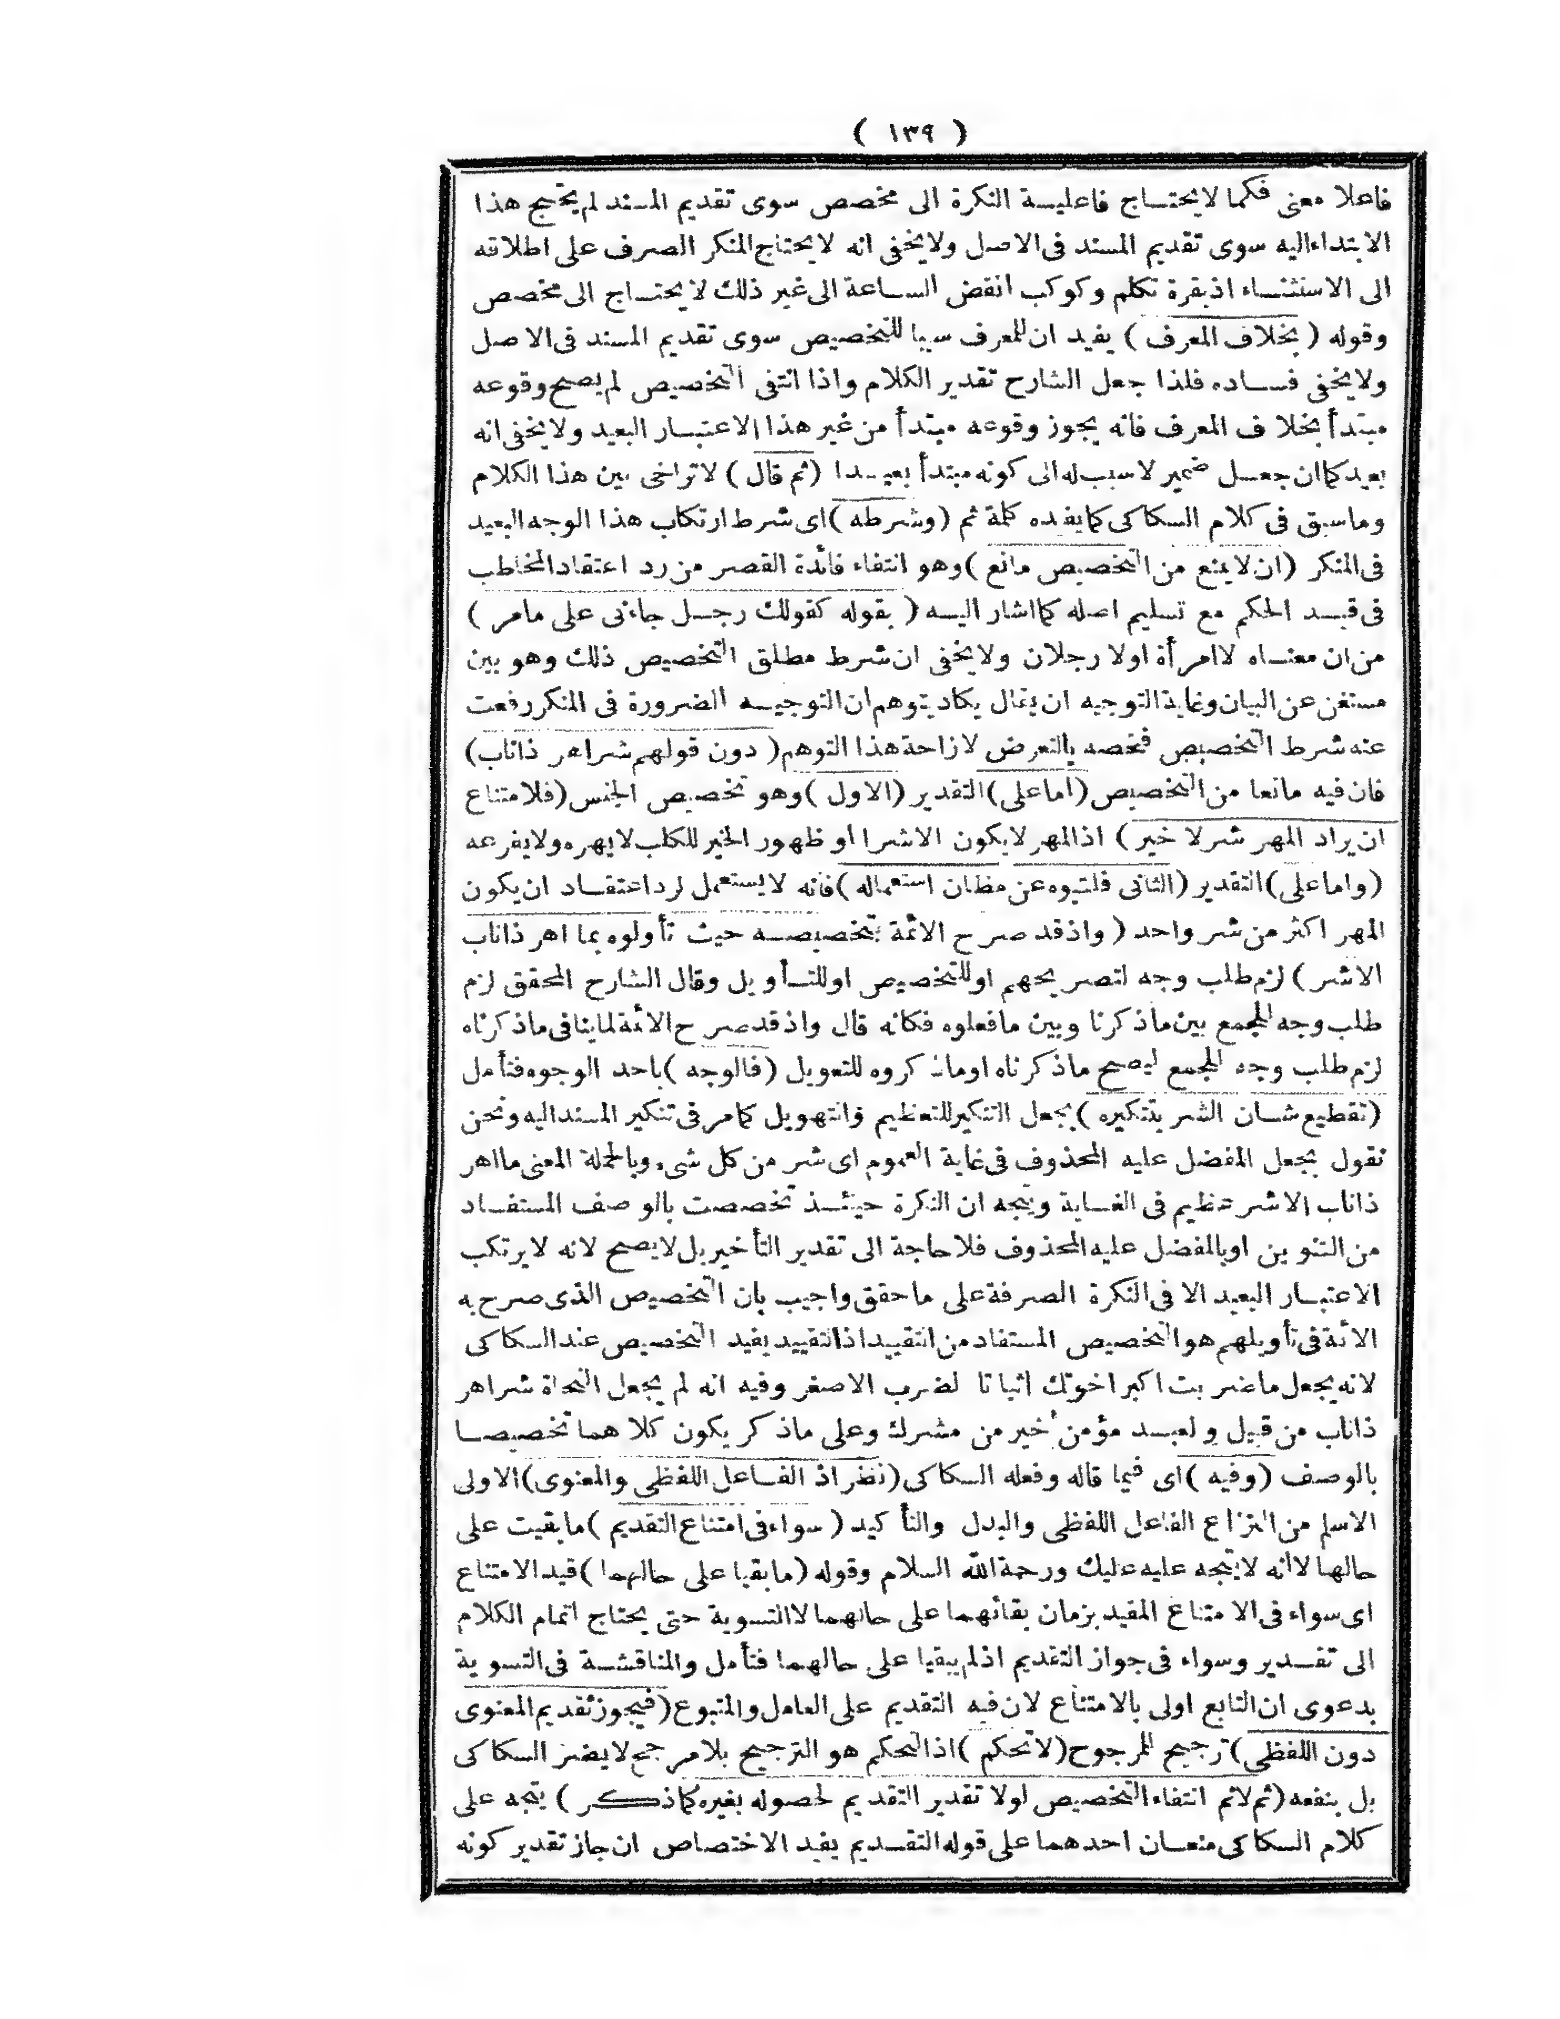 ( ١٣٩ )
فاعلا معنى فكما لا يحتاج فاعليسة النكرة الى مخصص سوى تقديم المسند لم يحتج هذا
الابتداء اليه سوى تقديم المسند فى الاصل ولا يخفى انه لا يحتاج المنكر الصرف على اطلاقه
الى الاستثناء اذ بقرة تكلم وكوكب انقض الساعة الى غير ذلك لا يحتاج الى مخصص
وقوله ( بخلاف المعرف ) يفيد ان للمعرف سببا للتخصيص سوى تقديم المسند فى الاصل
ولا يخفى فساده فلذا جعل الشارح تقدير الكلام واذا انتفى التخصيص لم يصح وقوعه
مبتدأ بخلاف المعرف فانه يجوز وقوعه مبتدأ من غير هذا الاعتبار البعيد ولا يخفى انه
بعيد كما ان جعل ضمير لاسبب له الى كونه مبتدأ بعيدا (ثم قال ) لا تراخى بين هذا الكلام
وما سبق فى كلام السكاكى كما يفده كلمة ثم (وشرطه )اى شرط ارتكاب هذا الوجه البعيد
فى المنكر (ان لا يمنع من التخصيص مانع )وهو انتفاء فائدة القصر من رد اعتقاد المخاطب
فى قيد الحكم مع تسليم اصله كما اشار اليه ( بقوله كقولك رجل جاءنى على مامر )
من ان معناه لا امرأة اولا رجلان ولا يخفى ان شرط مطلق التخصيص ذلك وهو بين
مستغن عن البيان وغاية التوجيه ان يقال يكاد يتوهم ان التوجيه الضرورة فى المنكر رفعت
عنه شرط التخصيص فخصه بالتعرض لازاحة هذا التوهم( دون قولهم شراهر ذاناب)
فان فيه مانعا من التخصيص(اما على)التقدير (الاول )وهو تخصيص الجنس(فلامتناع
ان يراد المهر شرلا خير ) اذ المهر لا يكون الاشرا او ظهور الخير للكلب لايهره ولا يفزعه
(واما على)التقدير (الثانى فلنبوه عن مظان استعماله )فانه لا يستعمل لرد اعتقاد ان يكون
المهر اكثر من شر واحد ( واذ قد صرح الائمة بتخصيصه حيث تأولوه بما اهر ذاناب
الاشر ) لزم طلب وجه لتصريحهم او للتخصيص او للتأويل وقال الشارح المحقق لزم
طلب وجه للجمع بين ماذكرنا وبين مافعلوه فكانه قال واذ قد صرح الائمة لما ينافى ماذكرناه
لزم طلب وجه للجمع ليصح ماذكرناه اوماذكروه للتعويل (فالوجه )باحد الوجوه فتأمل
(تفظيع شان الشر بتنكيره )بجعل التنكير للتعظيم والتهويل كمامر فى تنكير المسند اليه ونحن
نقول بجعل المفضل عليه المحذوف فى غاية العموم اى شر من كل شىء وبالجملة المعنى ما اهر
ذاناب الاشر عظيم فى الغاية ويتجه ان النكرة حينئذ تخصصت بالوصف المستفاد
من التنوين او بالمفضل عليه المحذوف فلا حاجة الى تقدير التأخير بل لا يصح لانه لا يرتكب
الاعتبار البعيد الا فى النكرة الصرفة على ما حقق واجيب بان التخصيص الذى صرح به
الائمة فى تأويلهم هو التخصيص المستفاد من التقييد اذ التقييد يفيد التخصيص عند السكاكى
لانه يجعل ماضربت اكبر اخوتك اثباتا لضرب الاصغر وفيه انه لم يجعل النحاة شراهر
ذاناب من قبيل ولعبد مؤمن خير من مشرك وعلى ماذكر يكون كلاهما تخصيصا
بالوصف (وفيه )اى فيما قاله وفعله السكاكى(نظر اذ الفاعل اللفظى والمعنوى)الاولى
الاسلم من النزاع الفاعل اللفظى والبدل والتأكيد ( سواء فى امتناع التقديم )مابقيت على
حالها لا انه لا يتجه عليه عليك ورحمة الله السلام وقوله (مابقيا على حالهما )قيد الامتناع
اى سواء فى الامتناع المقيد بزمان بقائهما على حالهما لا التسوية حتى يحتاج اتمام الكلام
الى تقدير وسواء فى جواز التقديم اذلم يبقيا على حالهما فتأمل والمناقشة فى التسوية
بدعوى ان التابع اولى بالامتناع لان فيه التقديم على العامل والمتبوع(فتجويز تقديم المعنوى
دون اللفظى)ترجيح المرجوح(لا تحكم )اذ التحكم هو الترجيح بلامرجح لا يضر السكاكى
بل ينفعه(ثم لانم انتفاء التخصيص لولا تقدير التقديم لحصوله بغيره كما ذكر ) يتجه على
كلام السكاكى منعان احدهما على قوله التقديم يفيد الاختصاص ان جاز تقدير كونه